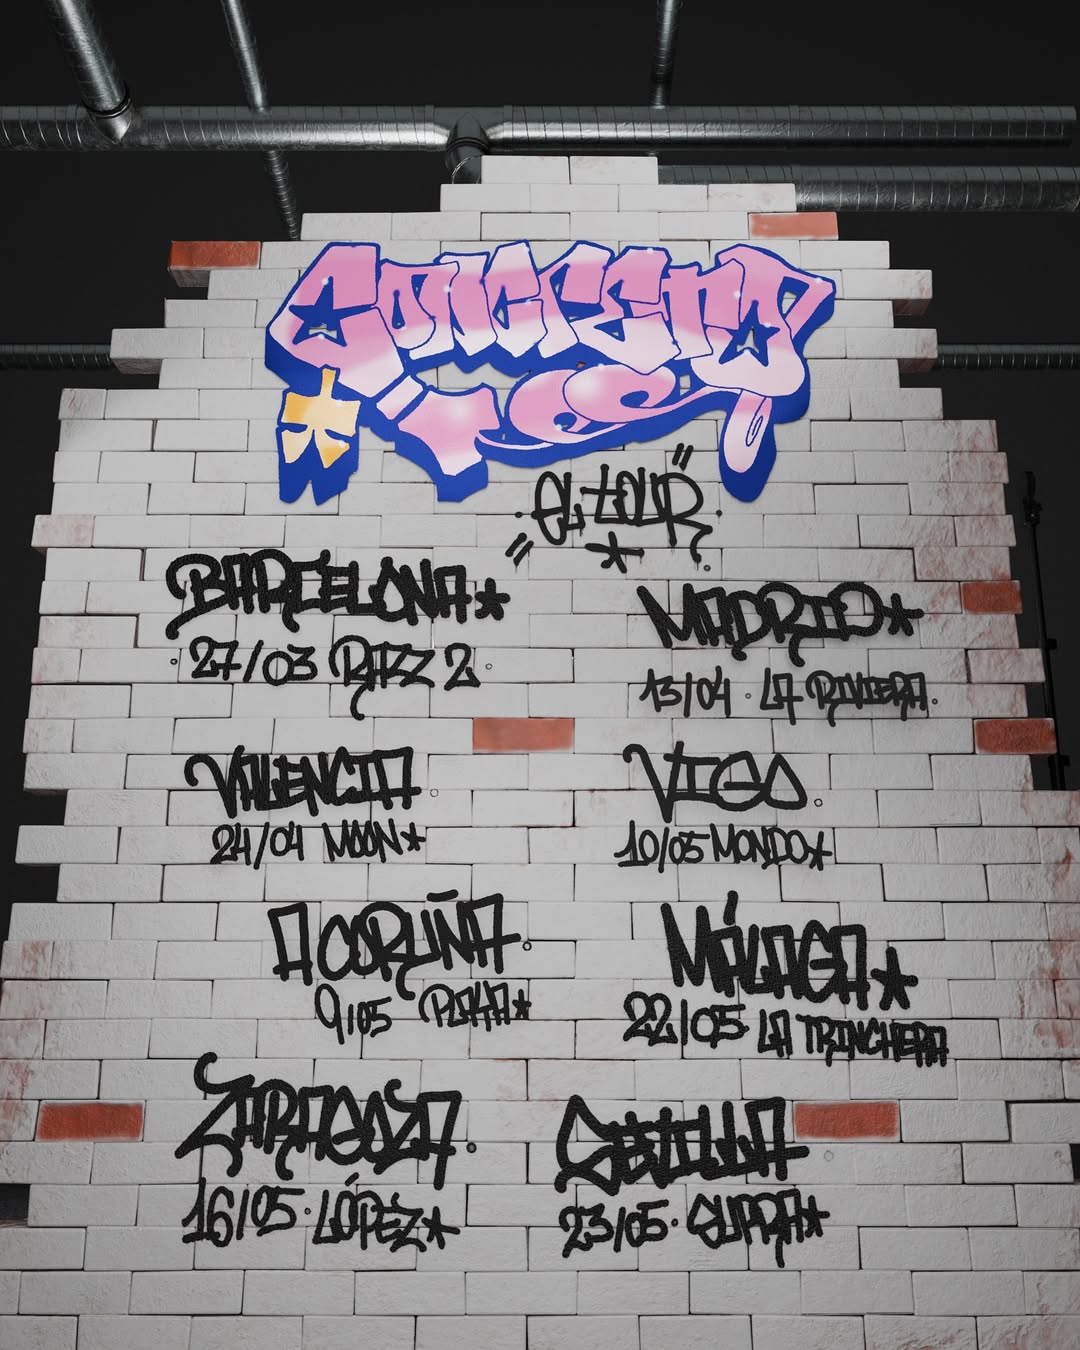 CONCRETO
EL TOUR
BARCELONA
27/03 RAZZ 2
MADRID
13/04 · LA RIVIERA
VALENCIA
24/04 MOON
VIGO
10/05 MONDO
A CORUÑA
9/05 PLAYA
MÁLAGA
22/05 LA TRINCHERA
ZARAGOZA
16/05 · LÓPEZ
SEVILLA
23/05 · SUPRA